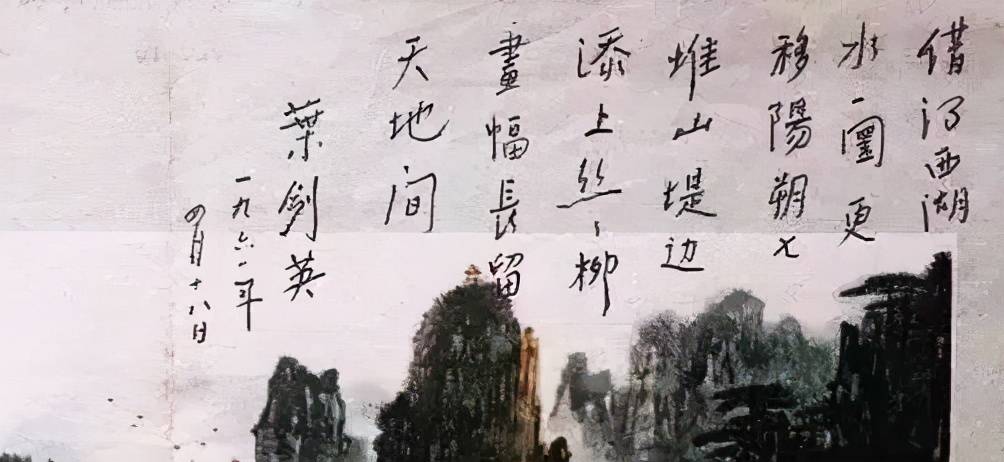 借得西湖
水一圜更
移陽朔七
堆山堤边
添上絲〻柳
畫幅長留
天地间
葉劍英
一九六一年
四月十八日